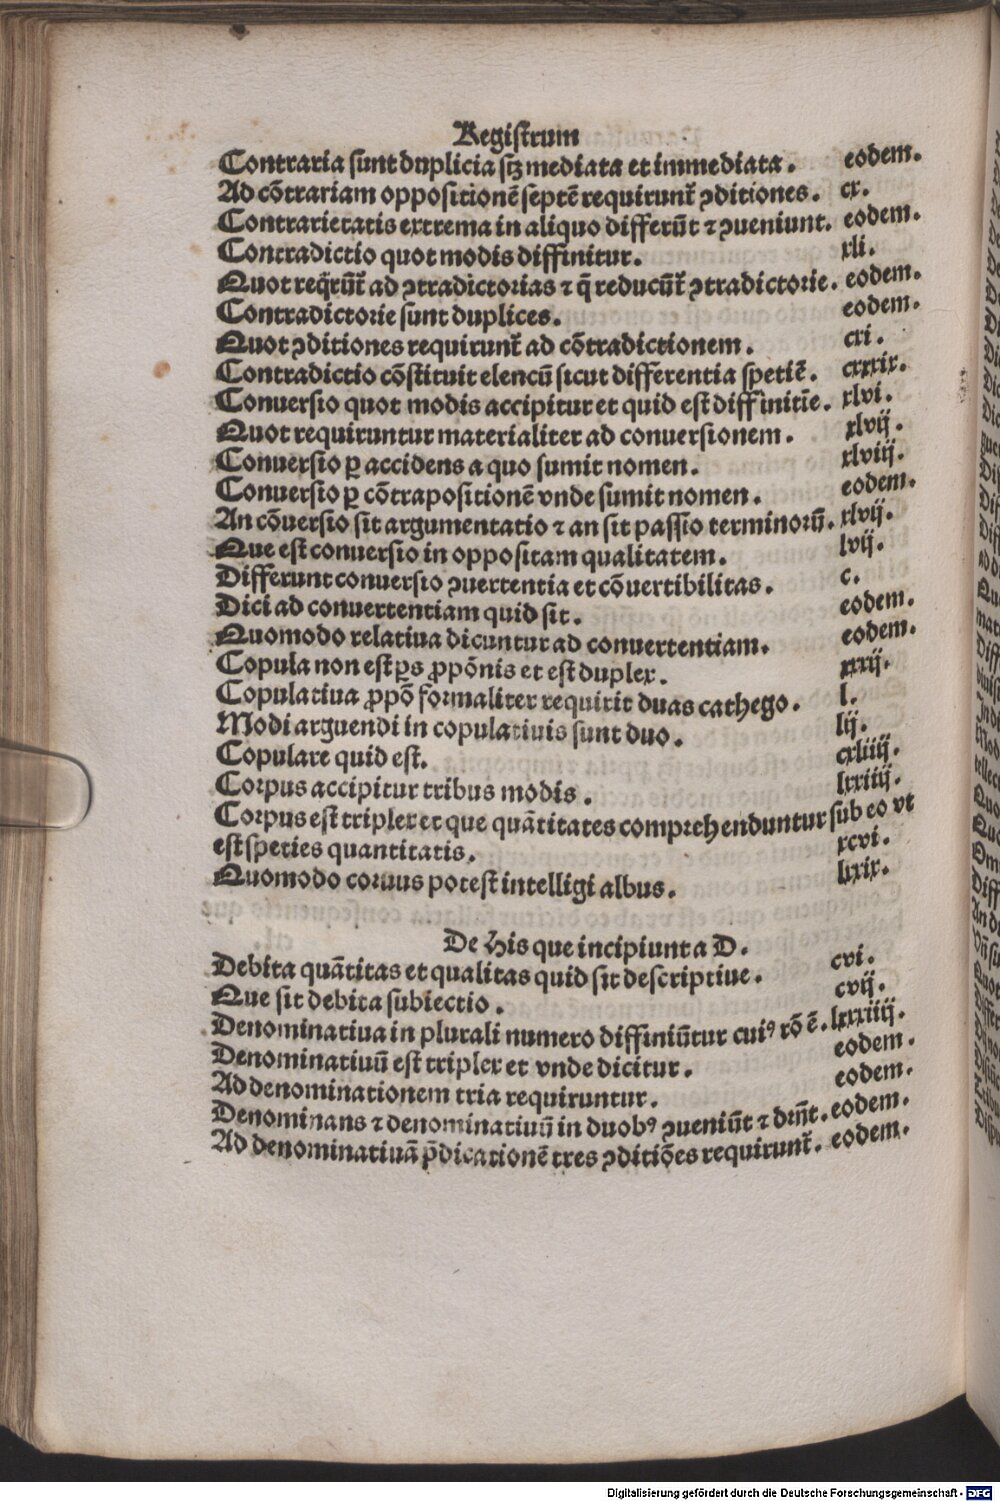 Registrum
Contraria sunt duplicia sꝫ mediata et immediata. eodem.
Ad cōtrariam oppositionē septē requirunt̄ ꝯditiones. cx.
Contrarietatis extrema in aliquo differūt ⁊ ꝯueniunt. eodem.
Contradictio quot modis diffinitur. xli.
Quot req̄rūt̄ ad ꝯtradictorias ⁊ q̄ reducūt̄ ꝯtradictorie. eodem.
Contradictorie sunt duplices. eodem.
Quot ꝯditiones requirunt̄ ad cōtradictionem. cxi.
Contradictio cōstituit elencū sicut differentia spetiē. cxxxix.
Conuersio quot modis accipitur et quid est diffinitiē. xlvi.
Quot requiruntur materialiter ad conuersionem. xlvij.
Conuersio ꝑ accidens a quo sumit nomen. xlviij.
Conuersio ꝑ cōtrapositionē vnde sumit nomen. eodem.
An cōuersio sit argumentatio ⁊ an sit passio terminorū. xlvij.
Que est conuersio in oppositam qualitatem. lvij.
Differunt conuersio ꝯuertentia et cōuertibilitas. c.
Dici ad conuertentiam quid sit. eodem.
Quomodo relatiua dicuntur ad conuertentiam. eodem.
Copula non est ꝑs ꝓpōnis et est duplex. xxxij.
Copulatiua ꝓpō formaliter requirit duas cathego. l.
Modi arguendi in copulatiuis sunt duo. lij.
Copulare quid est. cxliiij.
Corpus accipitur tribus modis. lxxiiij.
Corpus est triplex et que quātitates comprehenduntur sub eo vt
est species quantitatis. xcvi.
Quomodo coruus potest intelligi albus. lxix.
De his que incipiunt a D.
Debita quātitas et qualitas quid sit descriptiue. cvi.
Que sit debita subiectio. cvij.
Denominatiua in plurali numero diffiniūtur cuiꝰ rō ē. lxxxiiij.
Denominatiuū est triplex et vnde dicitur. eodem.
Ad denominationem tria requiruntur. eodem.
Denominans ⁊ denominatiuū in duobꝰ ꝯueniūt ⁊ drn̄t. eodem.
Ad denominatiuā p̄dicationē tres ꝯditiōes requirunt̄. eodem.
Digitalisierung gefördert durch die Deutsche Forschungsgemeinschaft - DFG